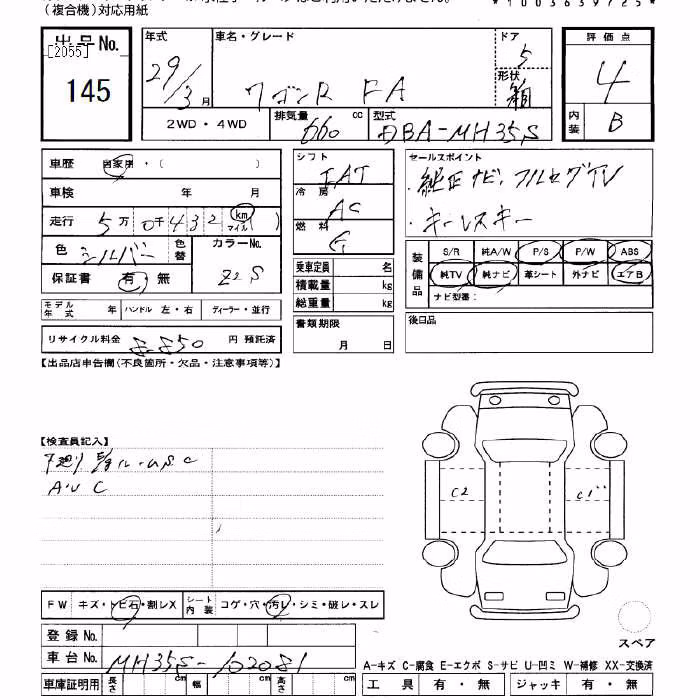 （複合機）対応用紙
*1003639725*
出品No.
[2055]
145
年式
29/3月
車名・グレード
ワゴンR FA
ドア
5
形状
箱
評価点
4
内装
B
2WD・4WD
排気量 660 cc
型式 DBA-MH35S
車歴 自家用・( )
車検 年 月
走行 5万0千432 km マイル ( )
色 シルバー
色替
カラーNo. Z2S
保証書 有・無
モデル年式 年
ハンドル 左・右
ディーラー・並行
リサイクル料金 8,850 円 預託済
シフト
IAT
冷房
AC
燃料
G
乗車定員 名
積載量 kg
総重量 kg
書類期限
月 日
セールスポイント
・純正ナビ、フルセグTV
・キーレスキー
装備品
S/R 純A/W P/S P/W ABS
純TV 純ナビ 革シート 外ナビ エアB
ナビ型番：
後日品
【出品店申告欄(不良箇所・欠品・注意事項等)】
【検査員記入】
下廻り
AU C
C2
C1
FW キズ・トビ石・割レX
シート内装 コゲ・穴・汚レ・シミ・破レ・スレ
登録No.
車台No. MH35S-102081
車庫証明用 長さ cm 幅 cm 高さ cm
スペア
A-キズ C-腐食 E-エクボ S-サビ U-凹ミ W-補修 XX-交換済
工具 有・無 ジャッキ 有・無